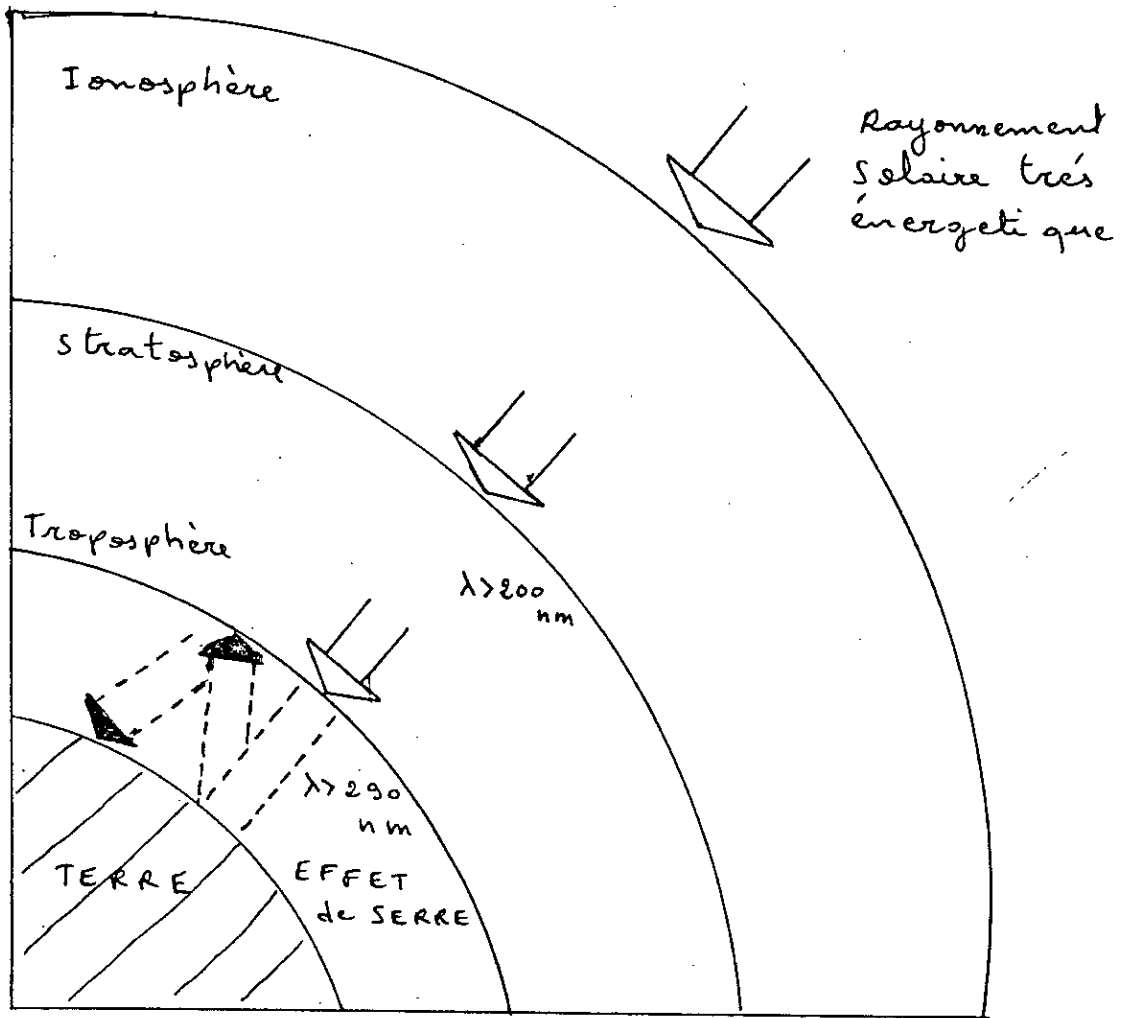 Ionosphère
Rayonnement
Solaire trés
énergeti que
Stratosphère
Troposphère
λ>200
nm
λ>290
nm
TERRE
EFFET
de SERRE